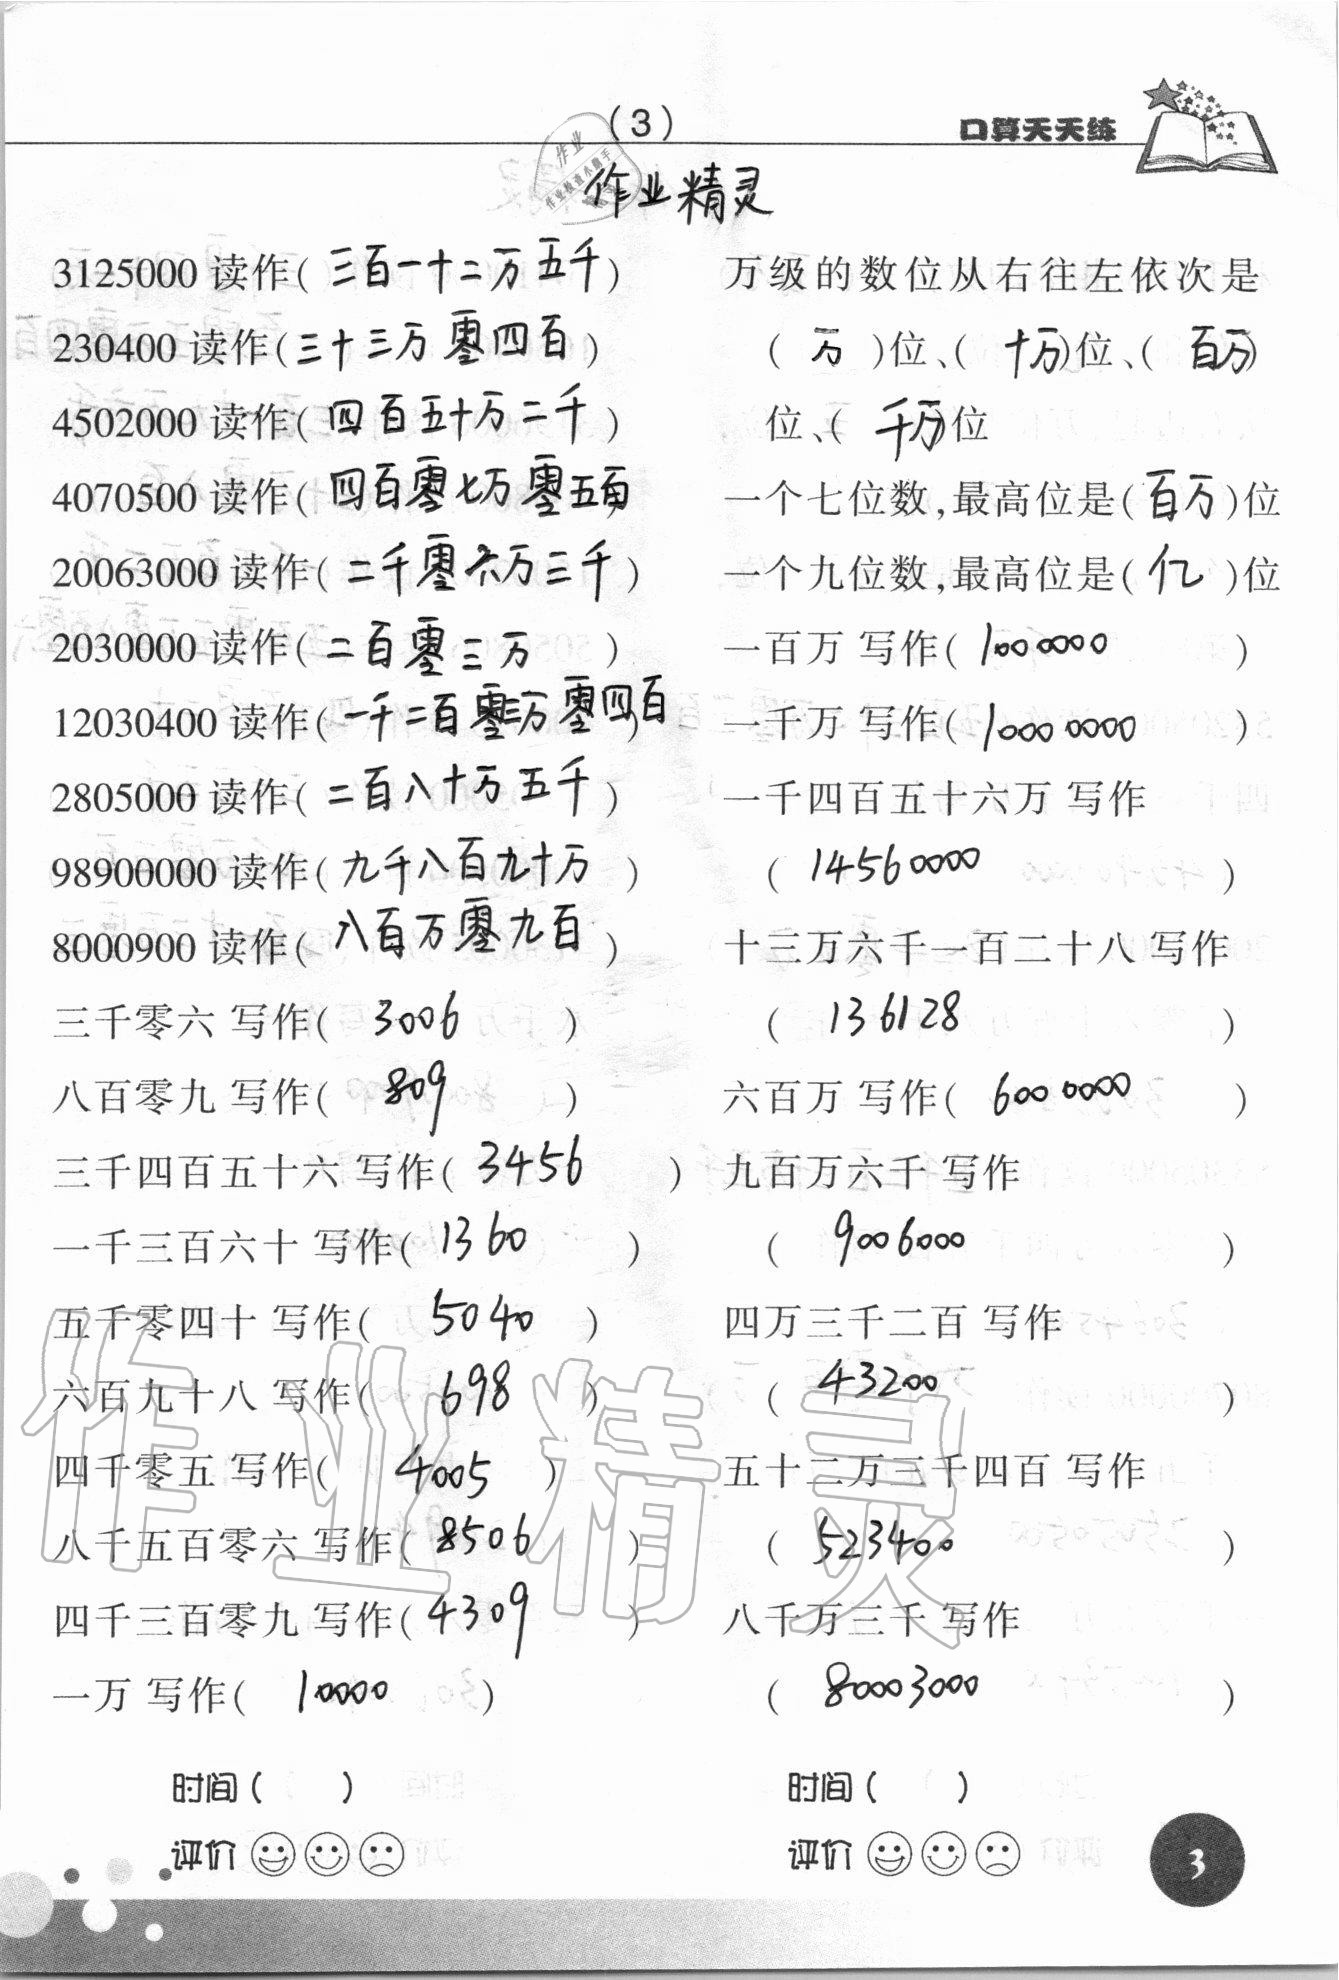 (3)
口算天天练
作业精灵
3125000 读作(三百一十二万五千)
230400 读作(三十三万零四百)
4502000 读作(四百五十万二千)
4070500 读作(四百零七万零五百)
20063000 读作(二千零六万三千)
2030000 读作(二百零三万)
12030400 读作(一千二百零三万零四百)
2805000 读作(二百八十万五千)
98900000 读作(九千八百九十万)
8000900 读作(八百万零九百)
三千零六 写作(3006)
八百零九 写作(809)
三千四百五十六 写作(3456)
一千三百六十 写作(1360)
五千零四十 写作(5040)
六百九十八 写作(698)
四千零五 写作(4005)
八千五百零六 写作(8506)
四千三百零九 写作(4309)
一万 写作(10000)
时间( )
评价
万级的数位从右往左依次是
(万)位、(十万)位、(百万)
位、(千万)位
一个七位数,最高位是(百万)位
一个九位数,最高位是(亿)位
一百万 写作(1000000)
一千万 写作(10000000)
一千四百五十六万 写作
(14560000)
十三万六千一百二十八 写作
(136128)
六百万 写作(6000000)
九百万六千 写作
(9006000)
四万三千二百 写作
(43200)
五十二万三千四百 写作
(523400)
八千万三千 写作
(80003000)
时间( )
评价
3
作业精灵